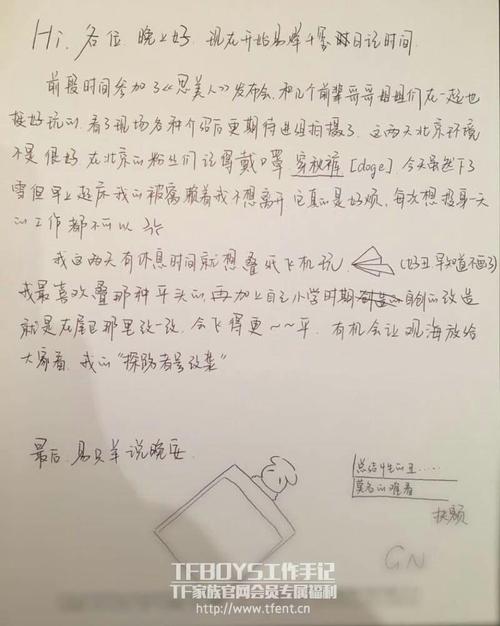 Hi, 各位 晚上好. 现在开始易烊千玺的日记时间
前段时间参加了《思美人》发布会, 和几个前辈哥哥姐姐们在一起也
挺好玩的. 看了现场各种介绍后更期待进组拍摄了. 这两天北京环境
不是很好 在北京的粉丝们记得戴口罩 穿秋裤 [doge] 今天虽然下了
雪但早上起床我的被窝赖着我不想离开 它真的是好烦, 每次想投身一天
的工作都不可以
我这两天有休息时间就想叠纸飞机玩. (好丑.早知道不画了)
我最喜欢叠那种平头的. 再加上自己小学时期 自创的改造
就是在尾巴那里改一改. 会飞得更~~平. 有机会让观海放给
大家看. 我的“探险者号改装”
最后. 易只羊说晚安
总结性的丑.....
莫名的难看
扶额
GN
TFBOYS工作手记
TF家族官网会员专属福利
http://www.tfent.cn